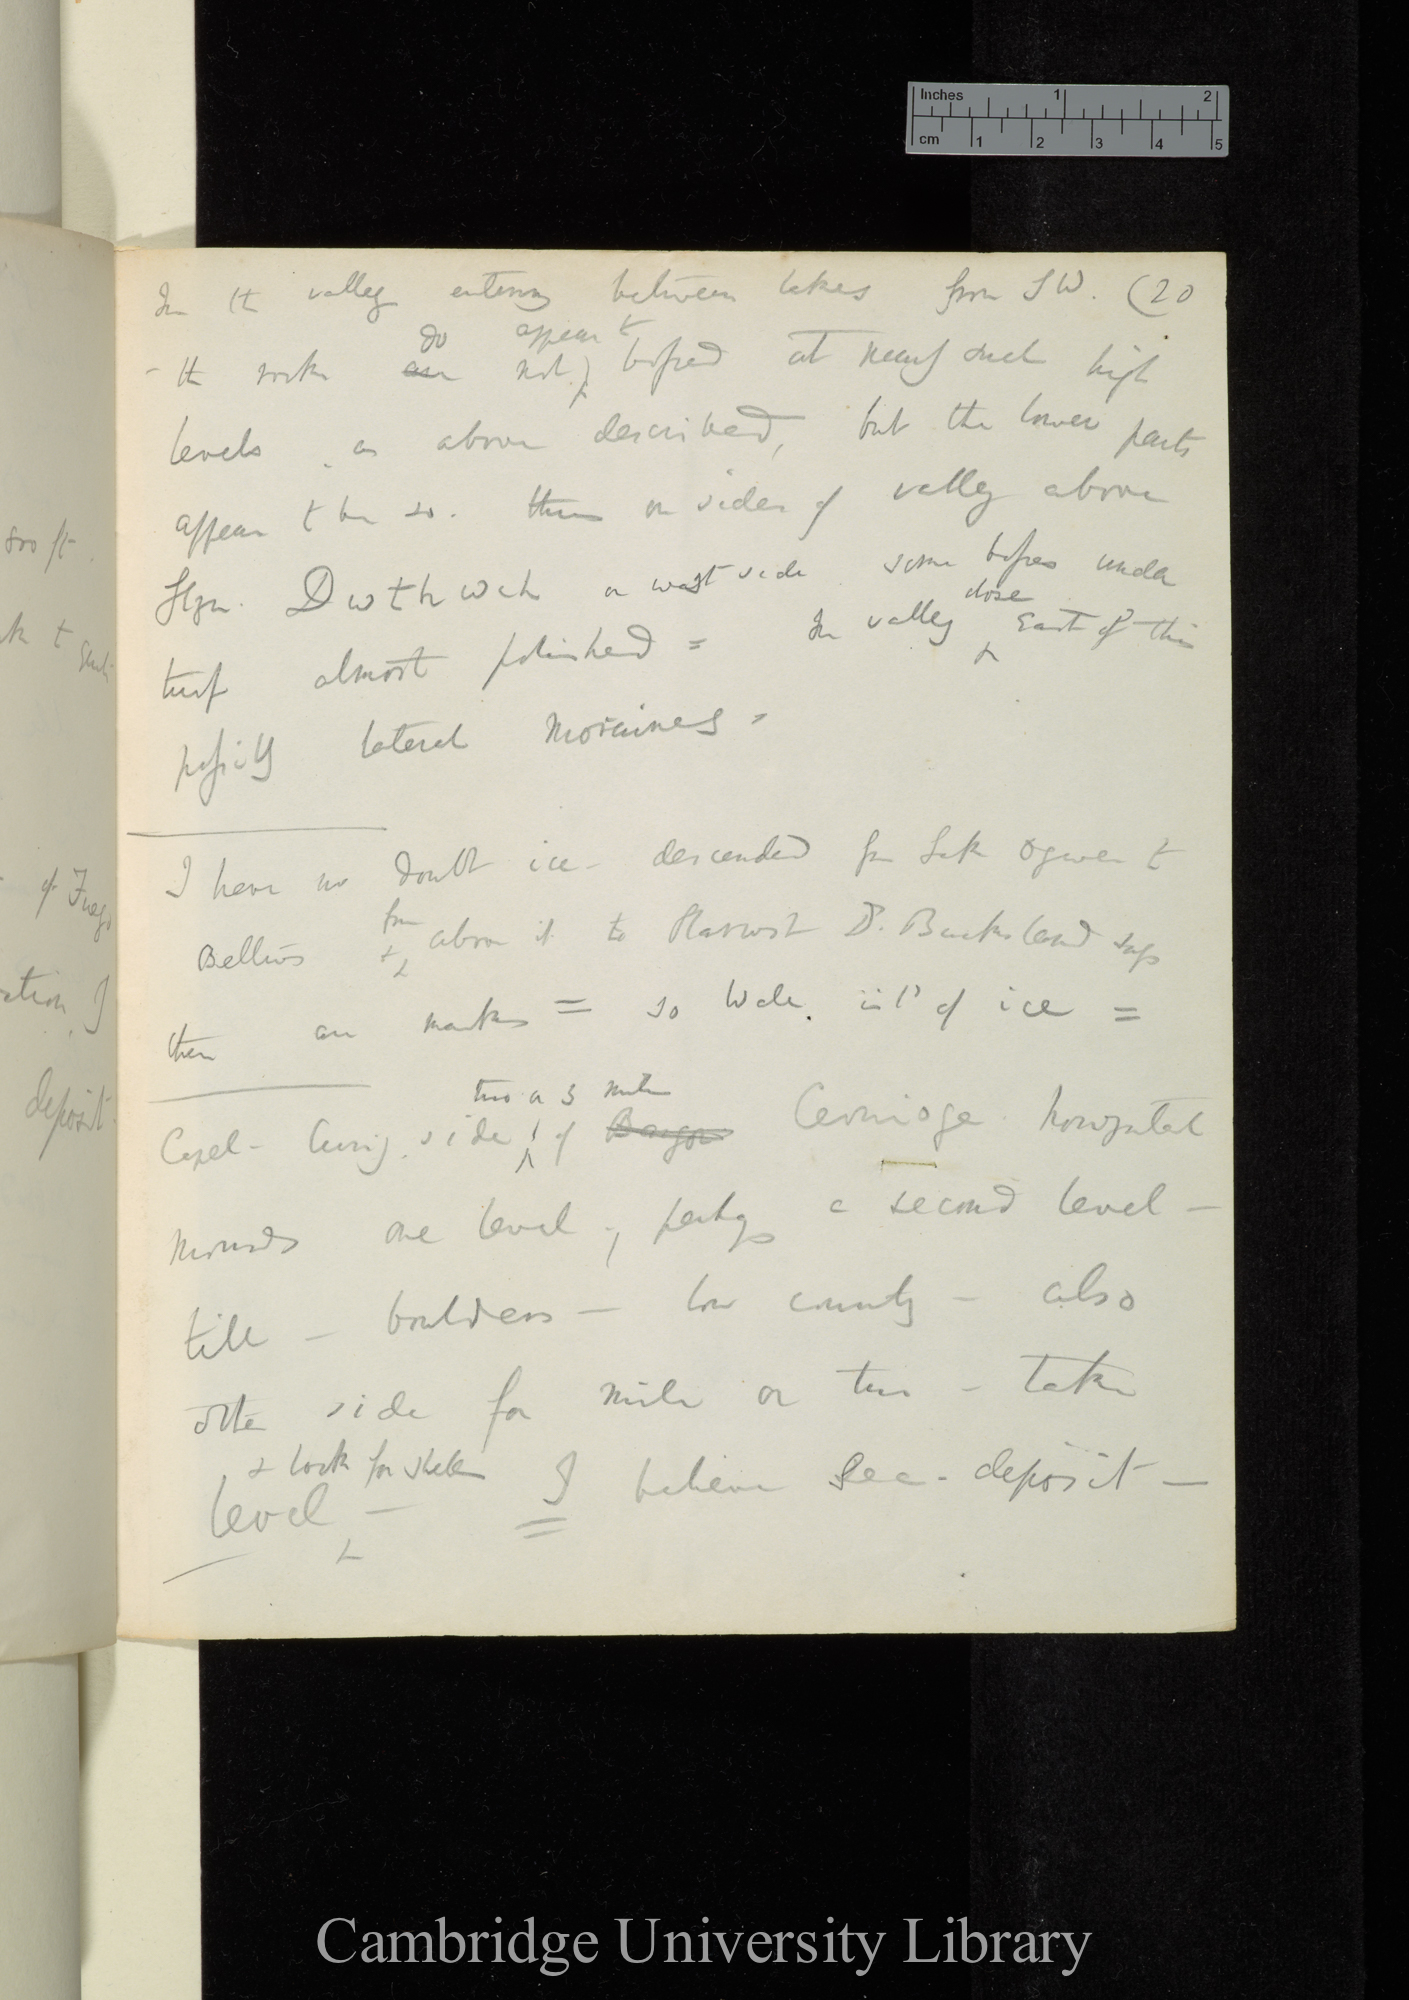 In the valley entering between lakes from SW. (20
do appear to
- the rocks are not bossed at nearly such high
levels as above described, but the lower parts
appear to be so. thus on sides of valley above
Llyn. Dwthwch on west side some bosses under
close
turf almost polished = In valley East of this
possibly lateral moraines =
I have no doubt ice- descended from Lake Ogwen &
from
Bellows & above it to Harwst Dr. Buckland says
there are marks = so wide of ice =
two or 3 miles
Capel-Curig side of Bangor Cernioge horizontal
mounds one level, perhaps a second level -
till - boulders - low country - also
other side for mile or two - take
& look for shells
level - I believe sea-deposit -
800 ft.
of Fuego
ation, I
deposit
Inches 1 2
cm 1 2 3 4 5
Cambridge University Library